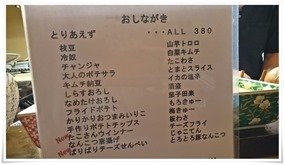 おしながき
とりあえず ・・・ALL 380
枝豆
冷奴
チャンジャ
大人のポテサラ
キムチ納豆
しらすおろし
なめたけおろし
フライドポテト
かりかりおつまみいりこ
手作りポテトチップス
New たこさんウインナー
なんこつ唐揚げ
New ぱりぱりチーズせんべい
山芋トロロ
白菜キムチ
たこわさ
とまとスライス
イカの塩辛
酒盗
茄子田楽
もろきゅー
梅きゅー
板わさ
チーズフライ
じゃこてん
とろとろ豚なんこつ